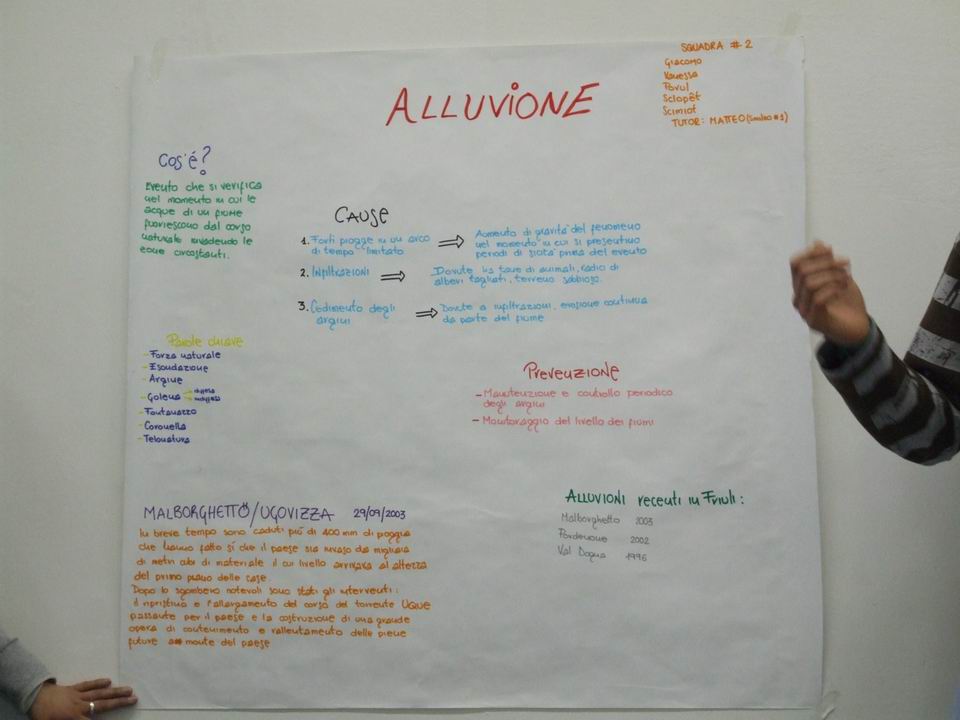 SQUADRA # 2
Giacomo
Vanessa
Povul
Sclopêt
Scimiot
TUTOR: MATTEO
ALLUVIONE
Cos'é?
Evento che si verifica
nel momento in cui le
acque di un fiume
fuoriescono dal corso
naturale invadendo le
zone circostanti.
CAUSE
1. Forti piogge in un arco
di tempo limitato
⇒ Aumento di gravità del fenomeno
nel momento in cui si presentino
periodi di siccità prima del evento
2. Infiltrazioni
⇒ Dovute tane di animali, radici di
alberi tagliati, terreno sabbioso.
3. Cedimento degli
argini
⇒ Dovute a infiltrazioni, erosione continua
da parte del fiume
Parole chiave
- Forza naturale
- Esondazione
- Argine
- Golena
- Fontanazzo
- Coronella
- Telonatura
Prevenzione
- Manutenzione e controllo periodico
degli argini
- Monitoraggio del livello dei fiumi
MALBORGHETTO/UGOVIZZA 29/09/2003
In breve tempo sono caduti più di 400 mm di pioggia
che hanno fatto sì che il paese sia invaso da migliaia
di metri cubi di materiale il cui livello arrivava al altezza
del primo piano delle case.
Dopo lo sgombero notevoli sono stati gli interventi:
il ripristino e l'allargamento del corso del torrente UGUE
passante per il paese e la costruzione di una grande
opera di contenimento e rallentamento delle piene
future a monte del paese
ALLUVIONI recenti in Friuli:
Malborghetto 2003
Pordenone 2002
Val Dogna 1996